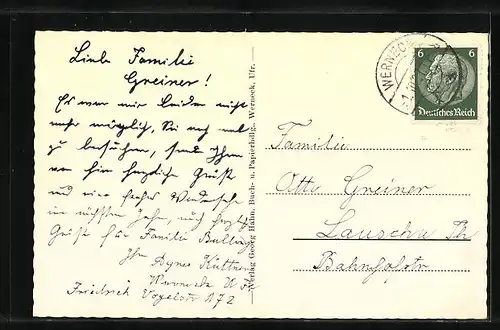 Liebe Familie
Greiner!
Es war mir leider nicht
mehr möglich, Sie noch mal
zu besuchen, sende Ihnen
von hier herzliche Grüße
und ein frohes Wiedersehen
im nächsten Jahr, auch herzliche
Grüße für Familie
Ihr
Werneck U. Fr.
Friedrich Vogelstr A72
Verlag Georg Hahn, Buch- u. Papierhdlg., Werneck, Ufr.
WERNECK
6 6
Deutsches Reich
Familie
Otto Greiner
Lauscha Th
Bahnhofstr